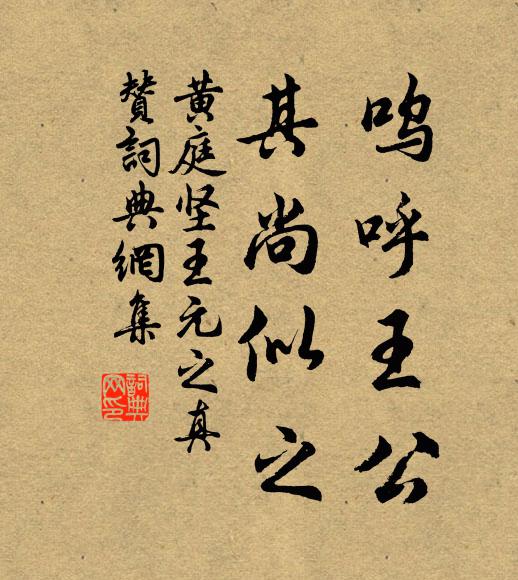 呜呼王公
其尚似之
黄庭坚王元之真
赞词典網集
詞典网印